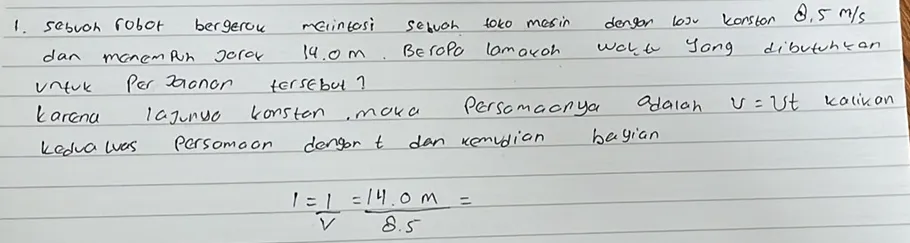 1. sebuah robot bergerak melintasi sebuah toko mesin dengan laju konstan 8,5 m/s
dan menempuh jarak 14.0 m. Berapa lamakah waktu yang dibutuhkan
untuk Perjalanan tersebut?
karena lajunya konstan, maka Persamaanya adalah v = vt kalikan
kedua ruas Persamaan dengan t dan kemudian bagian
1 = 1/v = 14.0 m/8.5 =